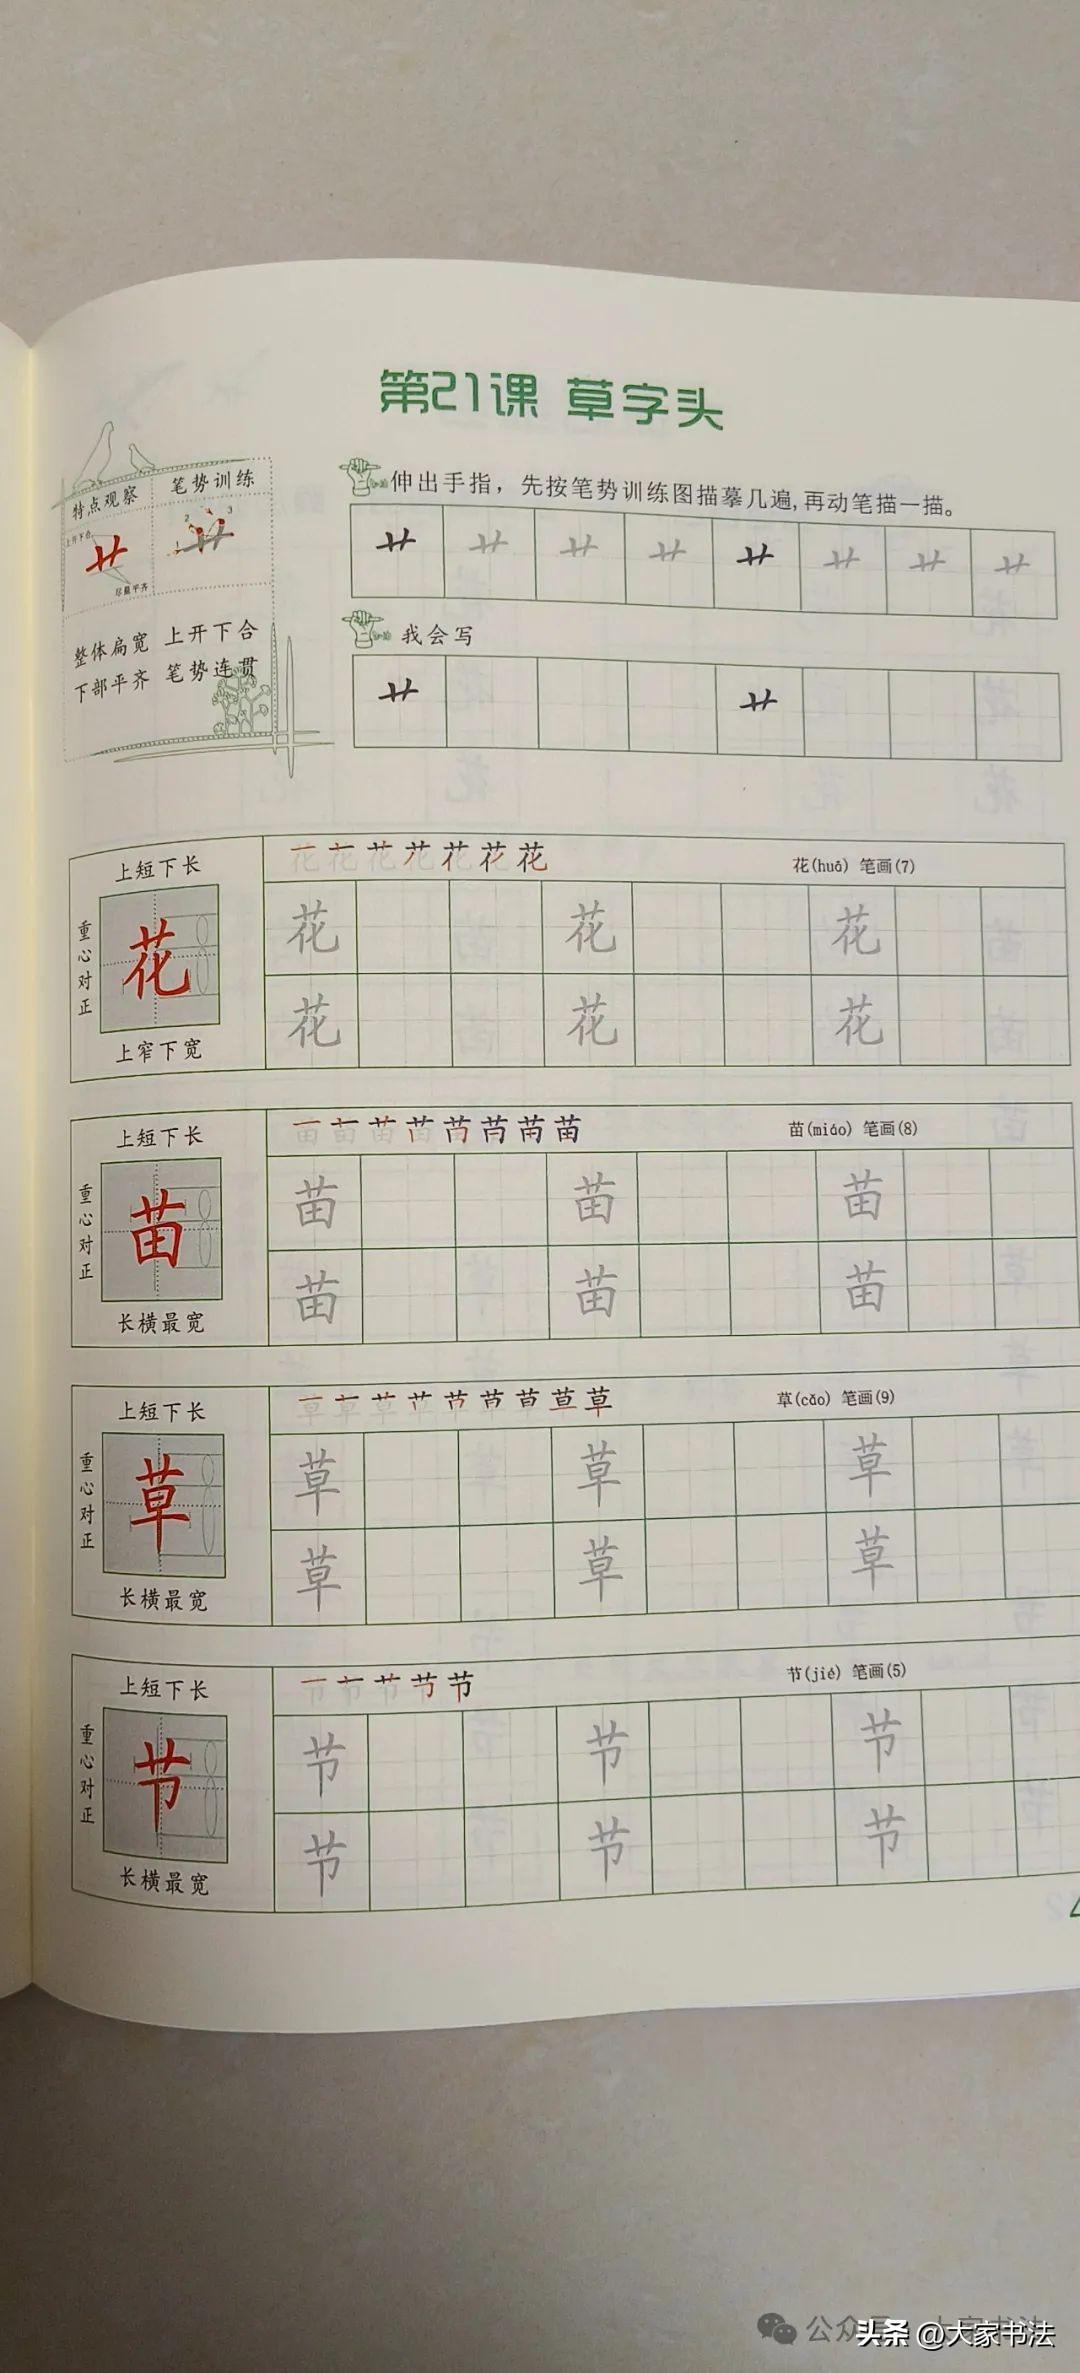 第21课 草字头
特点观察 笔势训练
上开下合
尽量平齐
1 2 3
整体扁宽 上开下合
下部平齐 笔势连贯
伸出手指，先按笔势训练图描摹几遍,再动笔描一描。
艹 艹 艹 艹 艹 艹 艹 艹
我会写
艹 艹
上短下长
重心对正
花
上窄下宽
花(huā) 笔画(7)
花 花 花
花 花 花
上短下长
重心对正
苗
长横最宽
苗(miáo) 笔画(8)
苗 苗 苗
苗 苗 苗
上短下长
重心对正
草
长横最宽
草(cǎo) 笔画(9)
草 草 草
草 草 草
上短下长
重心对正
节
长横最宽
节(jié) 笔画(5)
节 节 节
节 节 节
公众号 · 大家书法
头条 @大家书法